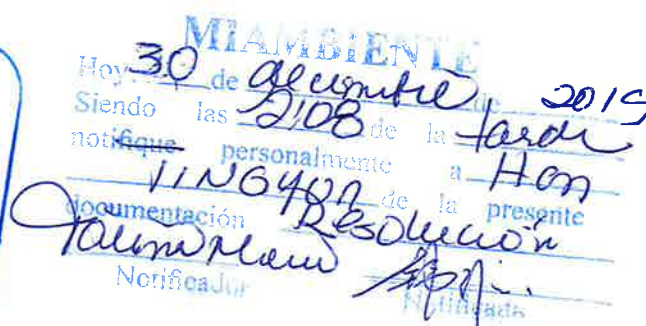 MIAMBIENTE
Hoy 30 de diciembre de 2019
Siendo las 2:08 de la tarde
notifique personalmente a Han
de la presente
documentación Resolución
Notificador Notificado